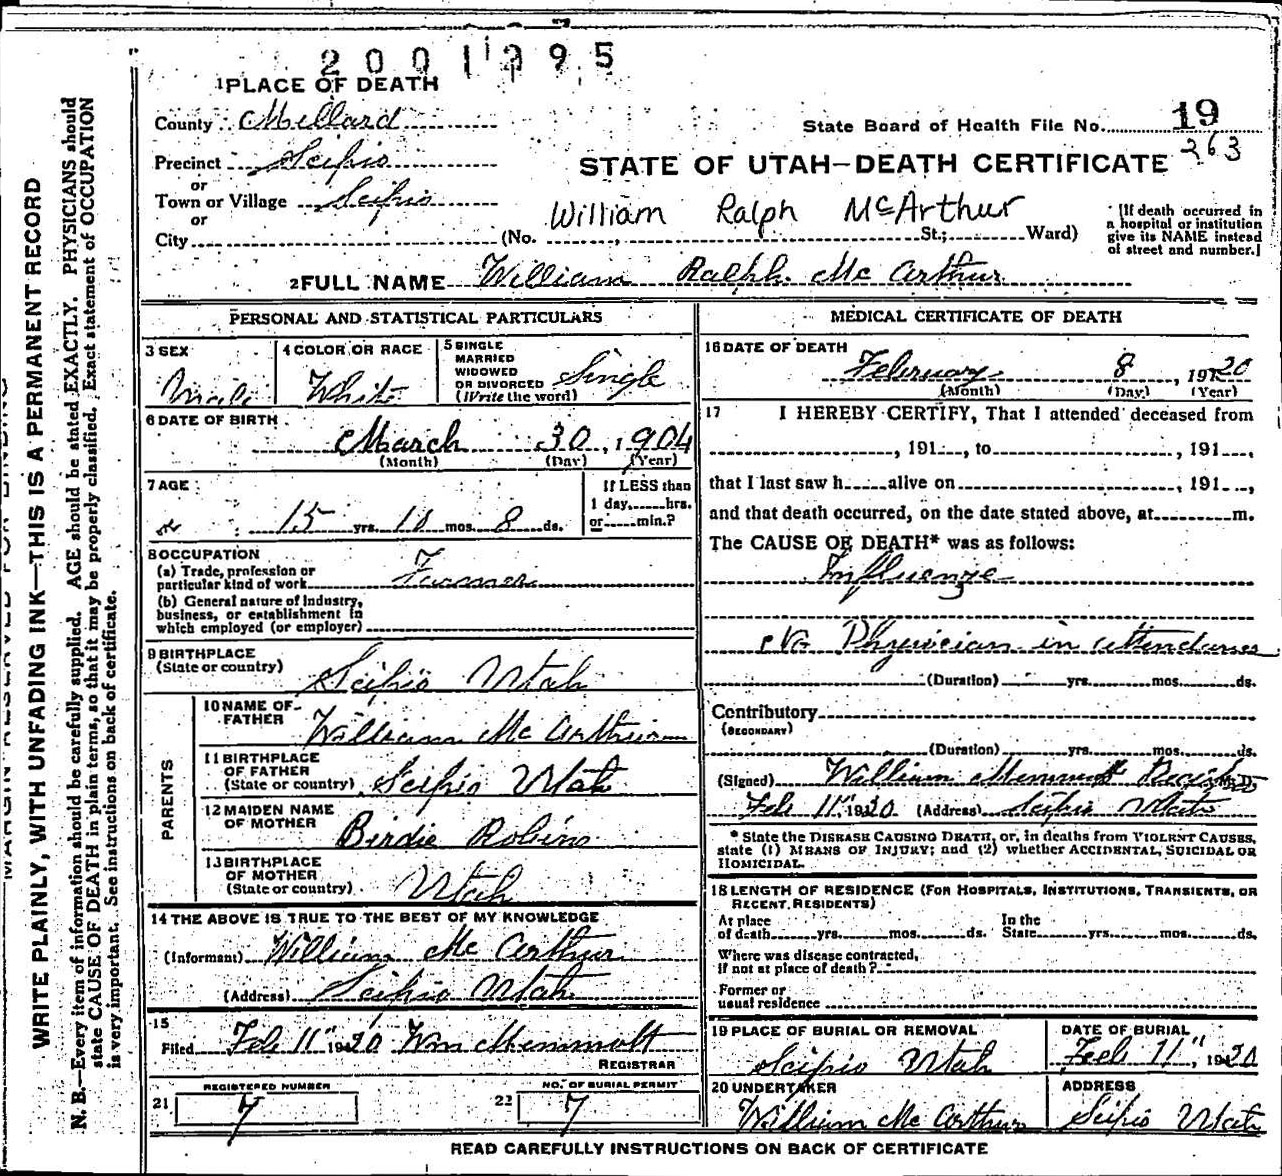 2001395
1 PLACE OF DEATH
County Millard
State Board of Health File No. 19
263
Precinct Scipio
STATE OF UTAH—DEATH CERTIFICATE
or
Town or Village Scipio
or
William Ralph McArthur
City (No. , St.; Ward)
[If death occurred in
a hospital or institution
give its NAME instead
of street and number.]
2 FULL NAME William Ralph Mc Arthur
PERSONAL AND STATISTICAL PARTICULARS
3 SEX
Male
4 COLOR OR RACE
White
5 SINGLE
MARRIED
WIDOWED
OR DIVORCED
(Write the word)
Single
6 DATE OF BIRTH
March 30, 1904
(Month) (Day) (Year)
7 AGE
15 yrs. 10 mos. 8 ds.
If LESS than
1 day, hrs.
or min.?
8 OCCUPATION
(a) Trade, profession or
particular kind of work Farmer
(b) General nature of Industry,
business, or establishment in
which employed (or employer)
9 BIRTHPLACE
(State or country)
Scipio Utah
PARENTS
10 NAME OF
FATHER
William Mc Arthur
11 BIRTHPLACE
OF FATHER
(State or country) Scipio Utah
12 MAIDEN NAME
OF MOTHER
Birdie Robins
13 BIRTHPLACE
OF MOTHER
(State or country) Utah
14 THE ABOVE IS TRUE TO THE BEST OF MY KNOWLEDGE
(Informant) William Mc Arthur
(Address) Scipio Utah
15
Filed Feb 11" 1920 Wm Memmott
REGISTRAR
REGISTERED NUMBER
21 7
NO. OF BURIAL PERMIT
22 7
MEDICAL CERTIFICATE OF DEATH
16 DATE OF DEATH
February 8, 1920
(Month) (Day) (Year)
17 I HEREBY CERTIFY, That I attended deceased from
, 191 , to , 191 ,
that I last saw h alive on , 191 ,
and that death occurred, on the date stated above, at m.
The CAUSE OF DEATH* was as follows:
Influenza
No Physician in attendance
(Duration) yrs. mos. ds.
Contributory
(SECONDARY)
(Duration) yrs. mos. ds.
(Signed) William Memmott M. D.
Feb 11" 1920 (Address) Scipio Utah
* State the DISEASE CAUSING DEATH, or, in deaths from VIOLENT CAUSES,
state (1) MEANS OF INJURY; and (2) whether ACCIDENTAL, SUICIDAL OR
HOMICIDAL.
18 LENGTH OF RESIDENCE (FOR HOSPITALS, INSTITUTIONS, TRANSIENTS, OR
RECENT RESIDENTS)
At place
of death yrs. mos. ds.
In the
State yrs. mos. ds.
Where was disease contracted,
if not at place of death?
Former or
usual residence
19 PLACE OF BURIAL OR REMOVAL
Scipio Utah
DATE OF BURIAL
Feb 11", 1920
20 UNDERTAKER
William Mc Arthur
ADDRESS
Scipio Utah
READ CAREFULLY INSTRUCTIONS ON BACK OF CERTIFICATE
WRITE PLAINLY, WITH UNFADING INK—THIS IS A PERMANENT RECORD
N. B.—Every item of information should be carefully supplied. AGE should be stated EXACTLY. PHYSICIANS should
state CAUSE OF DEATH in plain terms, so that it may be properly classified. Exact statement of OCCUPATION
is very important. See instructions on back of certificate.